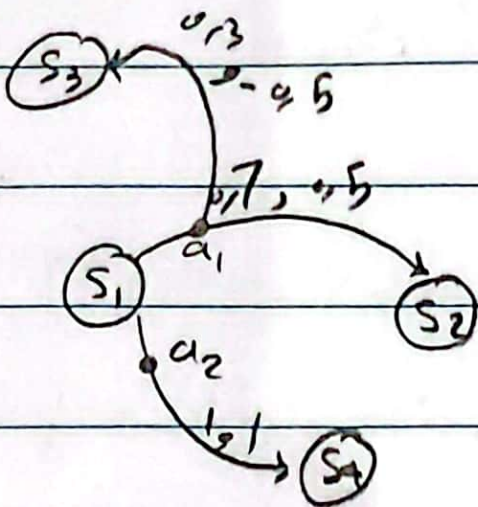 0,3
S3
, -0,5
0,7, 0,5
a1
S1
S2
a2
1, 1
S4